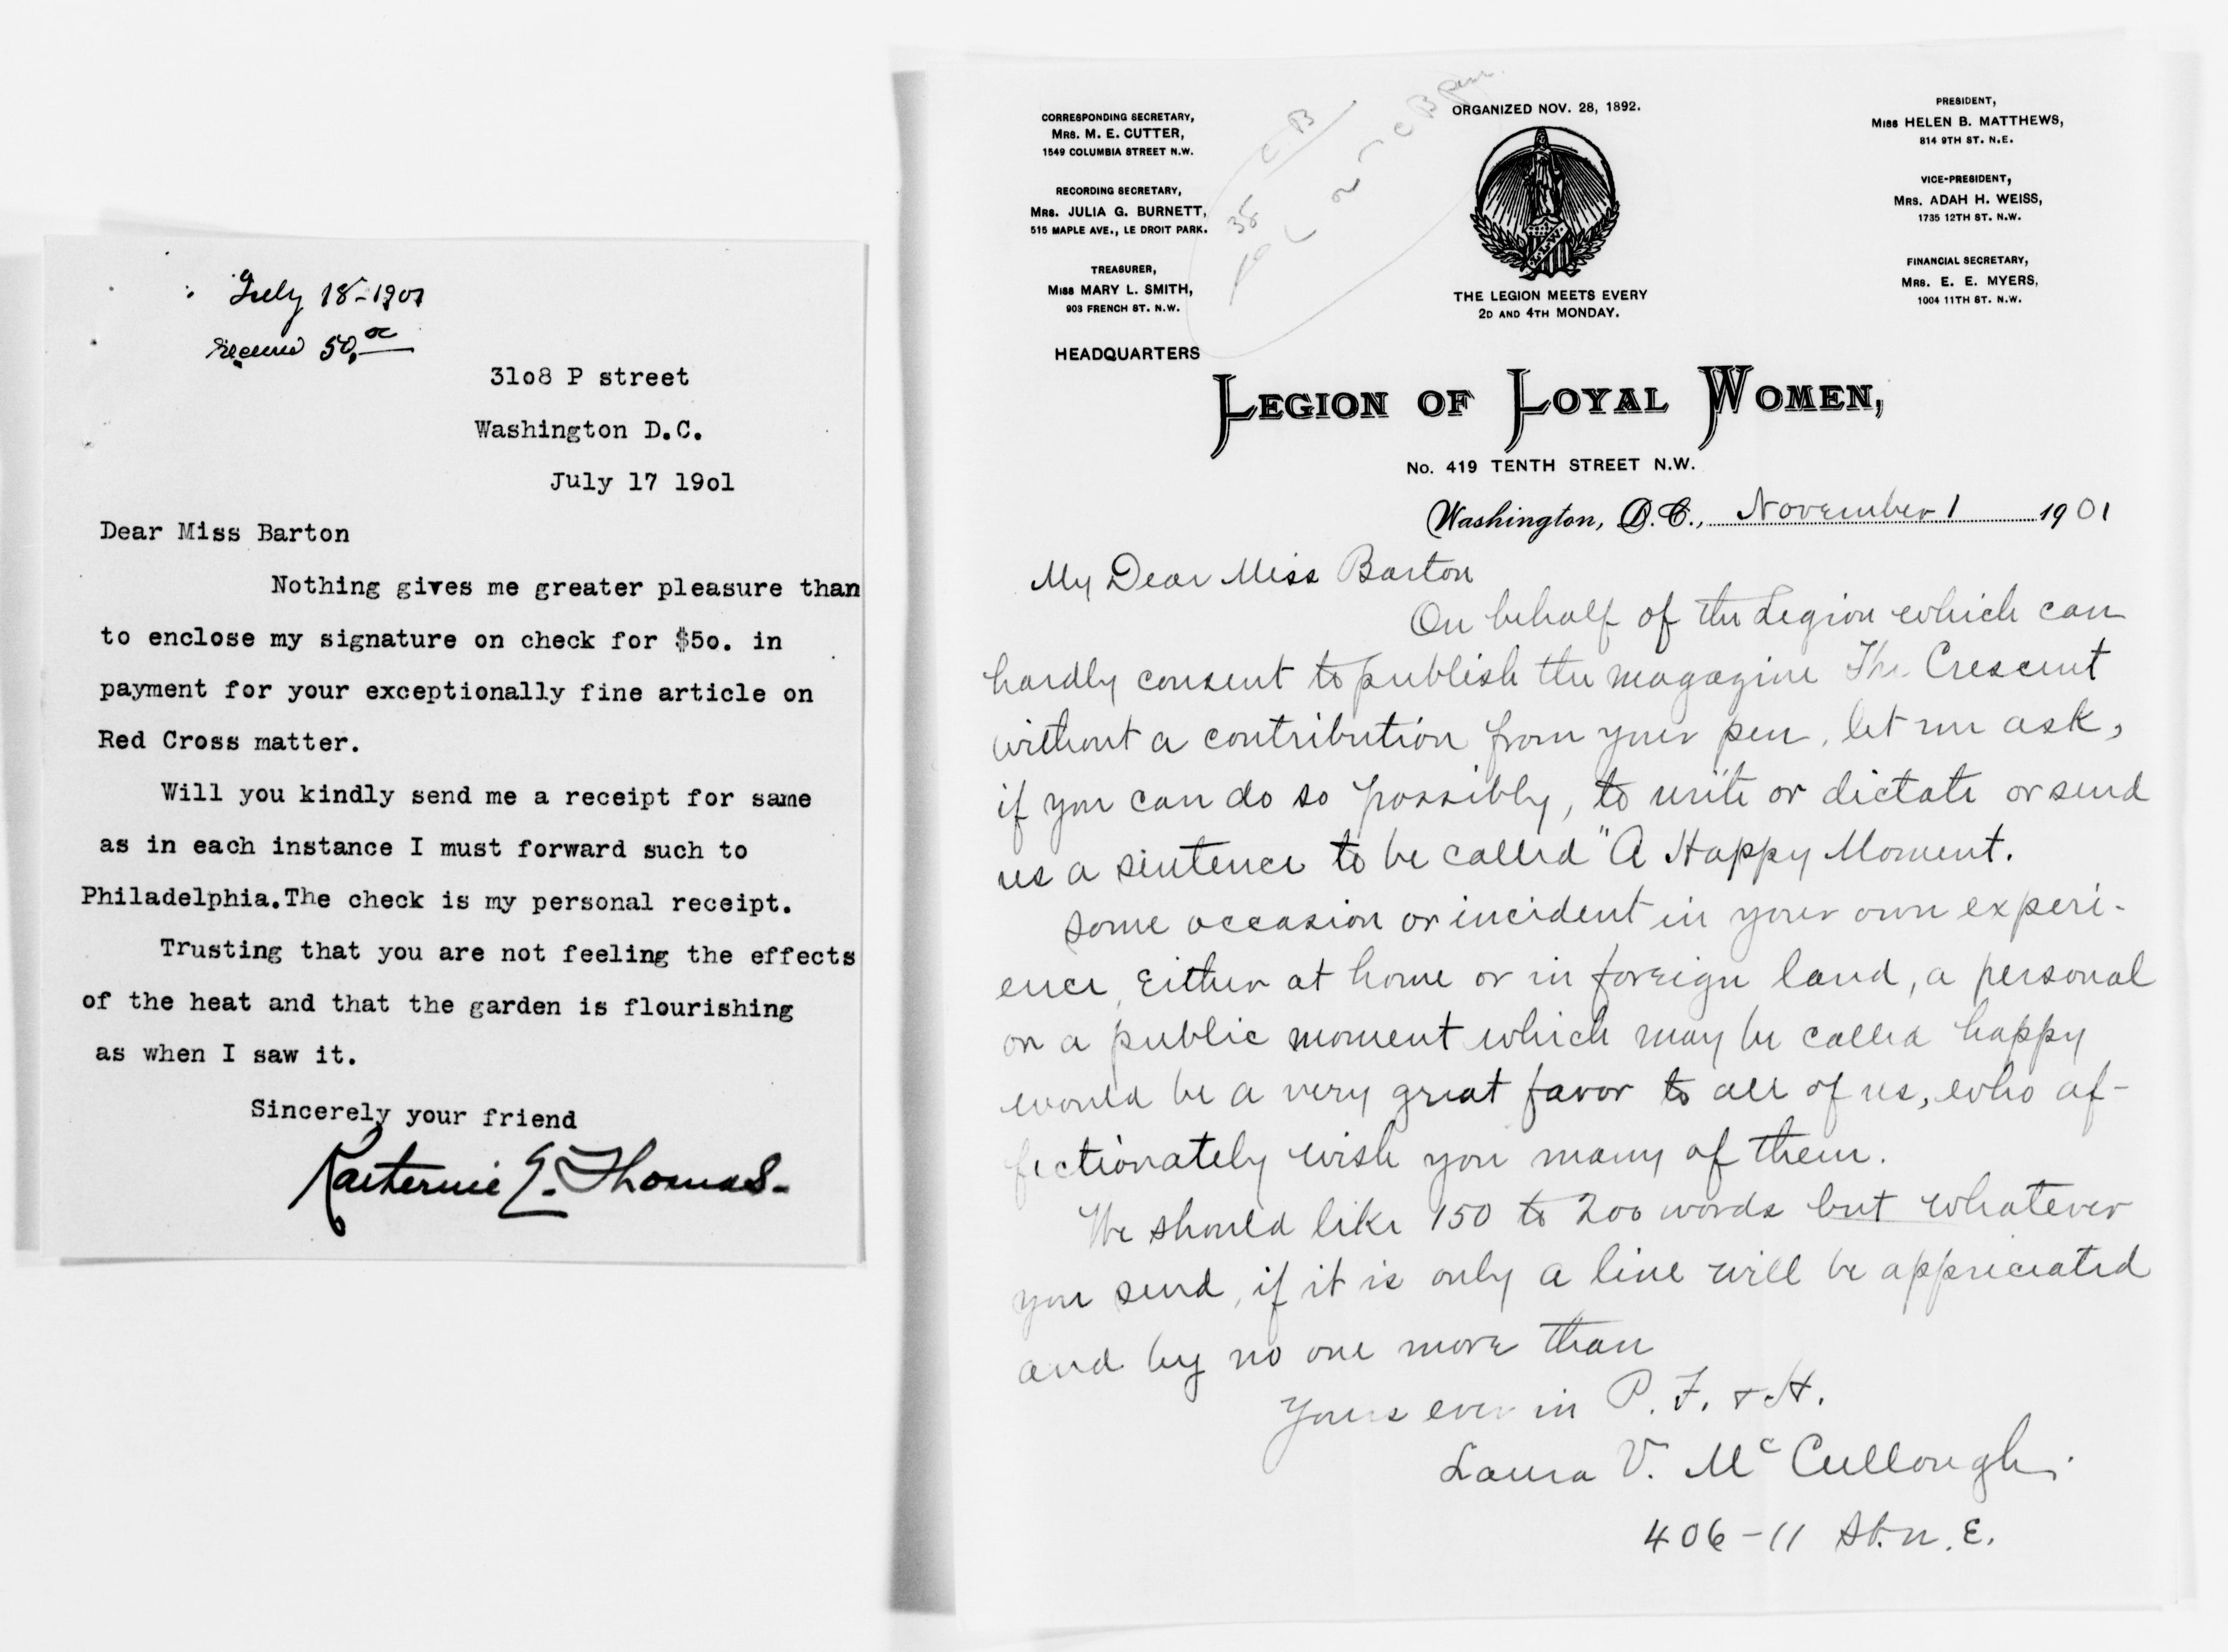 July 18-1901
Received 50,00
3108 P street
Washington D.C.
July 17 19o1
Dear Miss Barton
Nothing gives me greater pleasure than
to enclose my signature on check for $5o. in
payment for your exceptionally fine article on
Red Cross matter.
Will you kindly send me a receipt for same
as in each instance I must forward such to
Philadelphia.The check is my personal receipt.
Trusting that you are not feeling the effects
of the heat and that the garden is flourishing
as when I saw it.
Sincerely your friend
Katherine E. Thomas.
CORRESPONDING SECRETARY,
MRS. M. E. CUTTER,
1549 COLUMBIA STREET N.W.
RECORDING SECRETARY,
MRS. JULIA G. BURNETT,
515 MAPLE AVE., LE DROIT PARK.
TREASURER,
MISS MARY L. SMITH,
903 FRENCH ST. N.W.
HEADQUARTERS
C B
38
ORGANIZED NOV. 28, 1892.
THE LEGION MEETS EVERY
2D AND 4TH MONDAY.
PRESIDENT,
MISS HELEN B. MATTHEWS,
814 9TH ST. N.E.
VICE-PRESIDENT,
MRS. ADAH H. WEISS,
1735 12TH ST. N.W.
FINANCIAL SECRETARY,
MRS. E. E. MYERS,
1004 11TH ST. N.W.
LEGION OF LOYAL WOMEN,
No. 419 TENTH STREET N.W.
Washington, D.C., November 1 1901
My Dear Miss Barton
On behalf of the Legion which can
hardly consent to publish the magazine The Crescent
without a contribution from your pen, let me ask,
if you can do so possibly, to write or dictate or send
us a sentence to be called "A Happy Moment.
Some occasion or incident in your own experi-
ence, either at home or in foreign land, a personal
or a public moment which may be called happy
would be a very great favor to all of us, who af-
fectionately wish you many of them.
We should like 150 to 200 words but whatever
you send, if it is only a line will be appreciated
and by no one more than
Yours ever in P. F. & H.
Laura V. McCullough.
406-11 St. N. E.